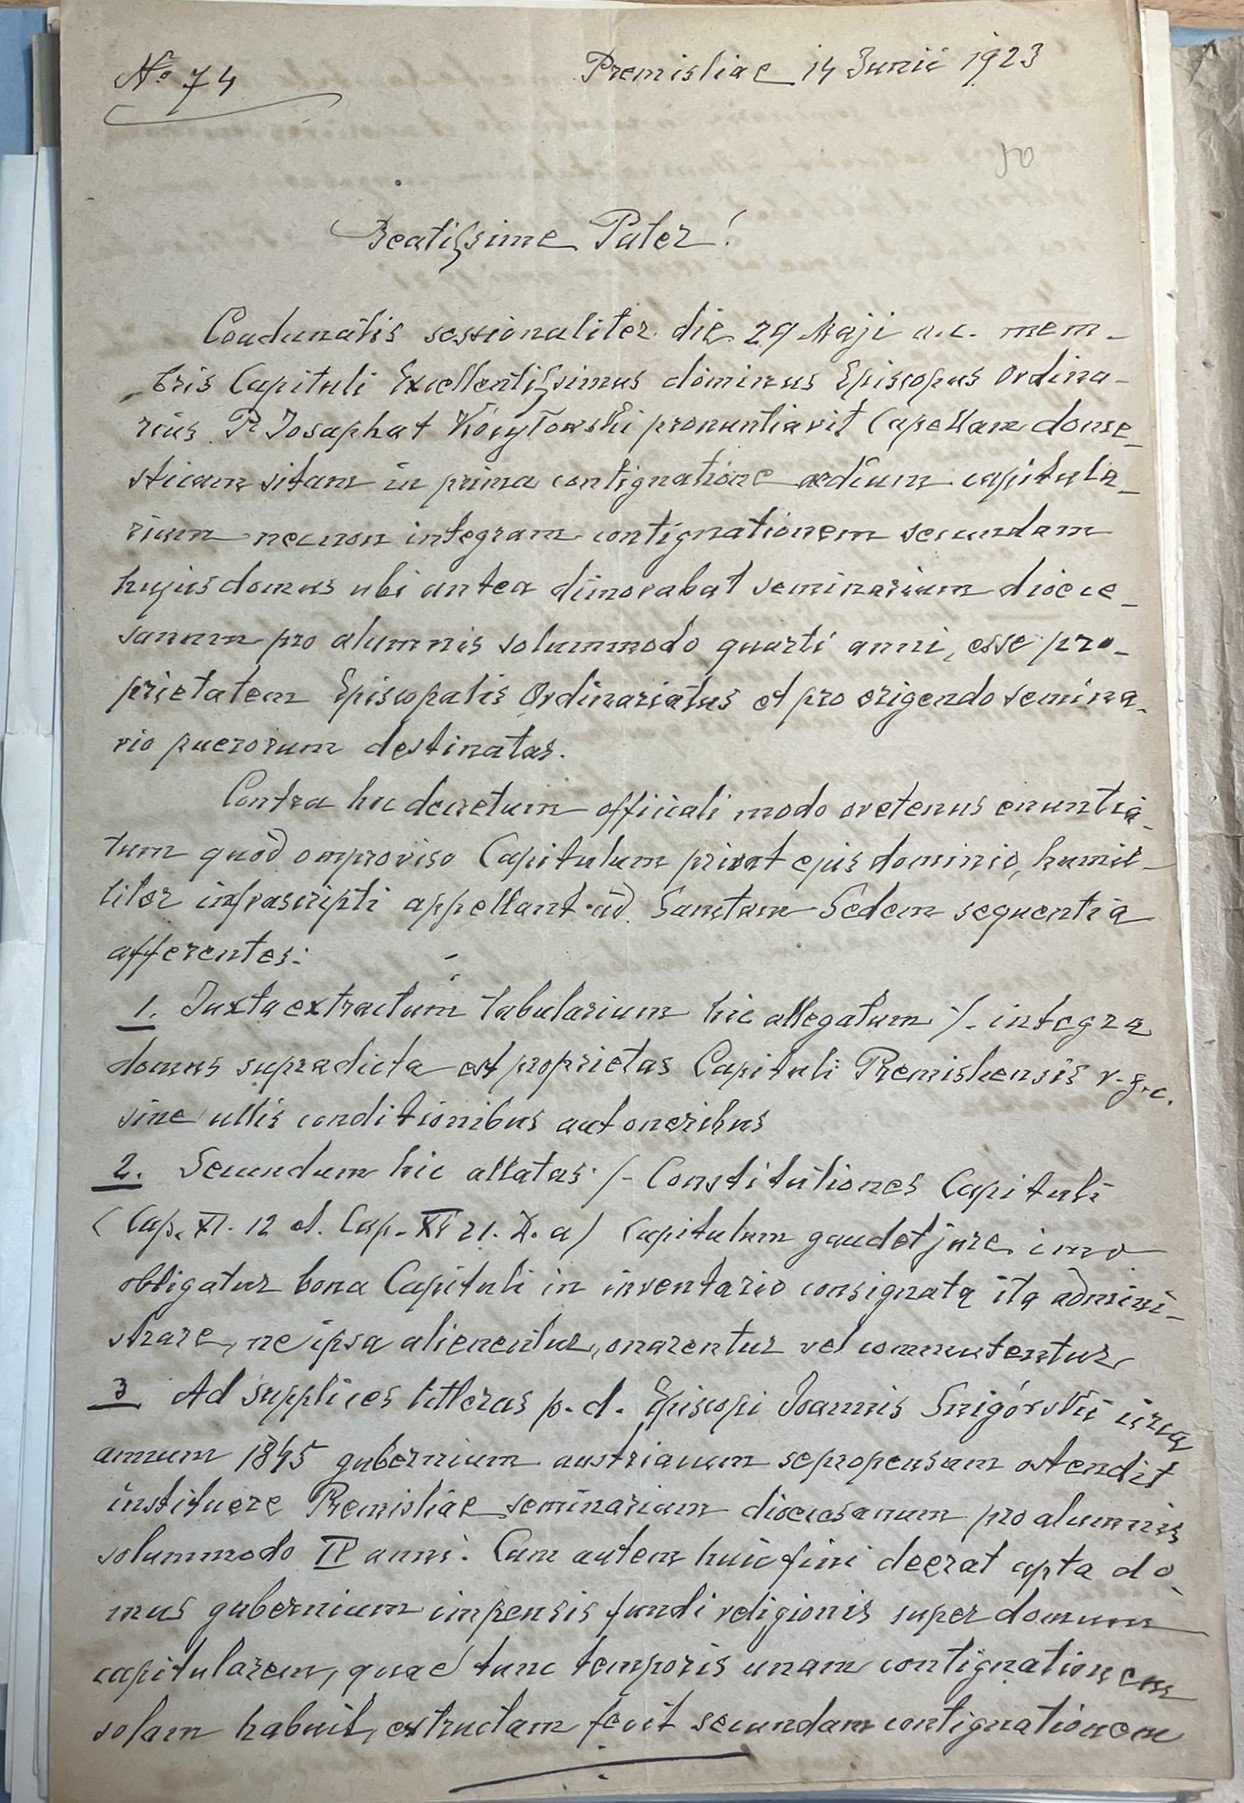 No 74
Premisliae 14 Junii 1923
50
Beatissime Pater!
Coadunatis sessionaliter die 29 Maji a.c. mem-
bris Capituli Excellentissimus dominus Episcopus Ordina-
rius Dr Josaphat Kocyłowski pronuntiavit Capellam dome-
sticam sitam in prima contignatione aedium capitula-
rium necnon integram contignationem secundam
hujus domus ubi antea dimorabat seminarium dioece-
sanum pro alumnis solummodo quarti anni, esse pro-
prietatem Episcopalis Ordinariatus et pro erigendo semina-
rio puerorum destinatas.
Contra hic decretum officiali modo oretenus enuntia-
tum quod omproviso Capitulum privat ejus dominio, humil-
liter infrascripti appellant ad Sanctam Sedem sequentia
afferentes:
1. Juxta extractum tabularium hic allegatum ·/. integra
domus supradicta est proprietas Capituli Premisliensis r.g.c.
sine ullis conditionibus aut oneribus
2. Secundum hic allatas ·/. Constitutiones Capituli
(Cap. XI. 12 et. Cap. XI 21. D. a) Capitulum gaudet jure imo
obligatur bona Capituli in inventario consignata ita admini-
strare, ne ipsa alienentur, onarentur vel commutentur
3 Ad supplices litteras p. d. Episcopi Joannis Snigórskii circa
annum 1845 gubernium austriacum se propensum ostendit
instituere Premisliae seminarium dioecesanum pro alumnis
solummodo IV anni. Cum autem huic fini deerat apta do-
mus gubernium impensis fundi religionis super domum
capitularem, quae tunc temporis unam contignationem
solam habuit, extructam fecit secundam contignationem